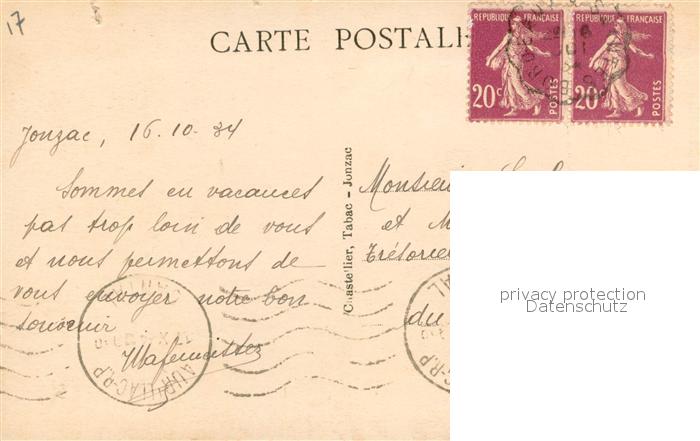 17
CARTE POSTALE
REPUBLIQUE FRANÇAISE
20c POSTES
REPUBLIQUE FRANÇAISE
20c POSTES
Jonzac, 16.10.34
Sommes en vacances
pas trop loin de vous
et nous permettons de
vous envoyer notre bon
souvenir
Chastelier, Tabac - Jonzac
Monsieur
et M
Trésorier
du
AURILLAC-R.P
privacy protection
Datenschutz